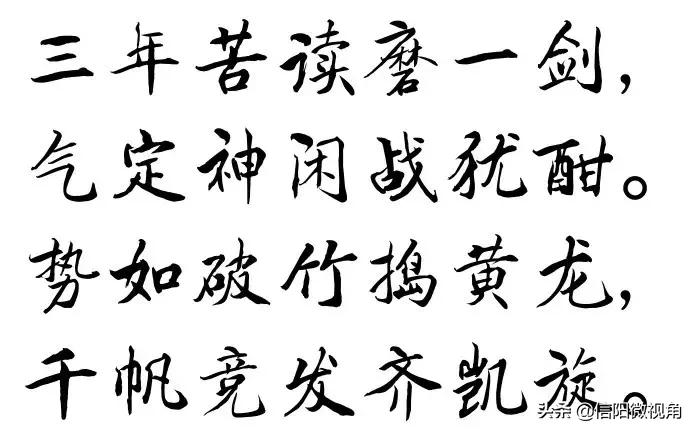 三年苦读磨一剑，
气定神闲战犹酣。
势如破竹捣黄龙，
千帆竞发齐凯旋。
头条 @信阳微视角